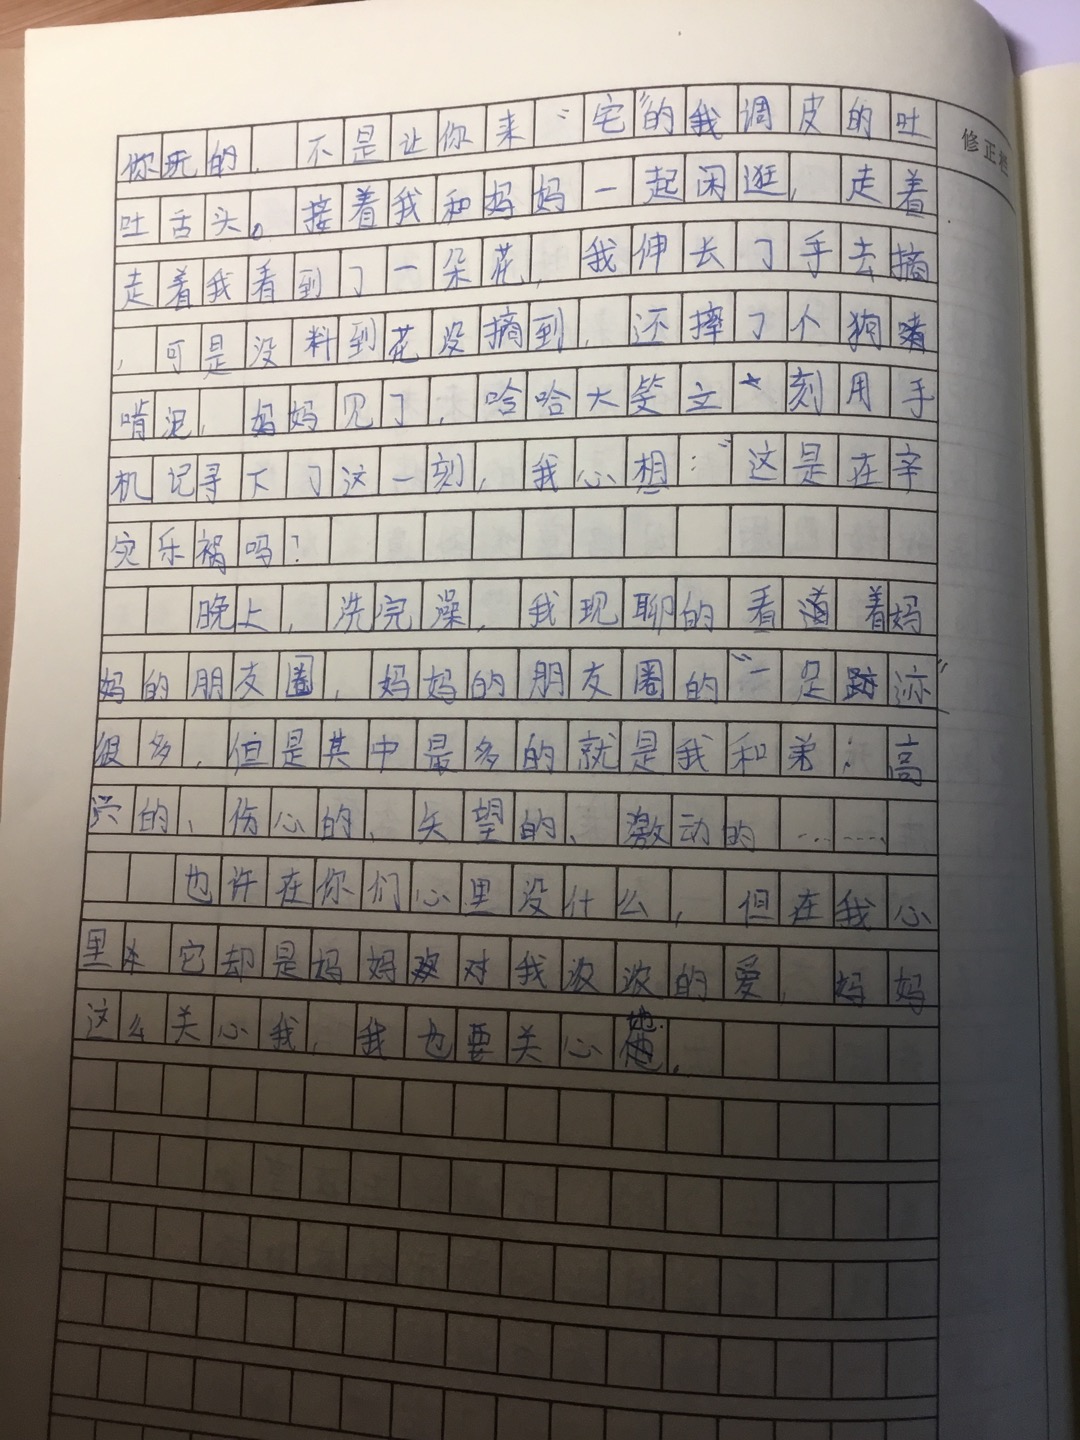 修正栏
你玩的，不是让你来“宅”的我调皮的吐
吐舌头。接着我和妈妈一起闲逛，走着
走着我看到了一朵花，我伸长了手去摘
，可是没料到花没摘到，还摔了个狗啃
啃泥，妈妈见了，哈哈大笑立刻用手
机记寻下了这一刻，我心想：“这是在辛
灾乐祸吗？
晚上，洗完澡，我现聊的看道着妈
妈的朋友圈，妈妈的朋友圈的“一足跡迹”
很多，但是其中最多的就是我和弟；高
兴的、伤心的、失望的、激动的……
也许在你们心里没什么，但在我心
里它却是妈妈对我浓浓的爱，妈妈
这么关心我，我也要关心她。